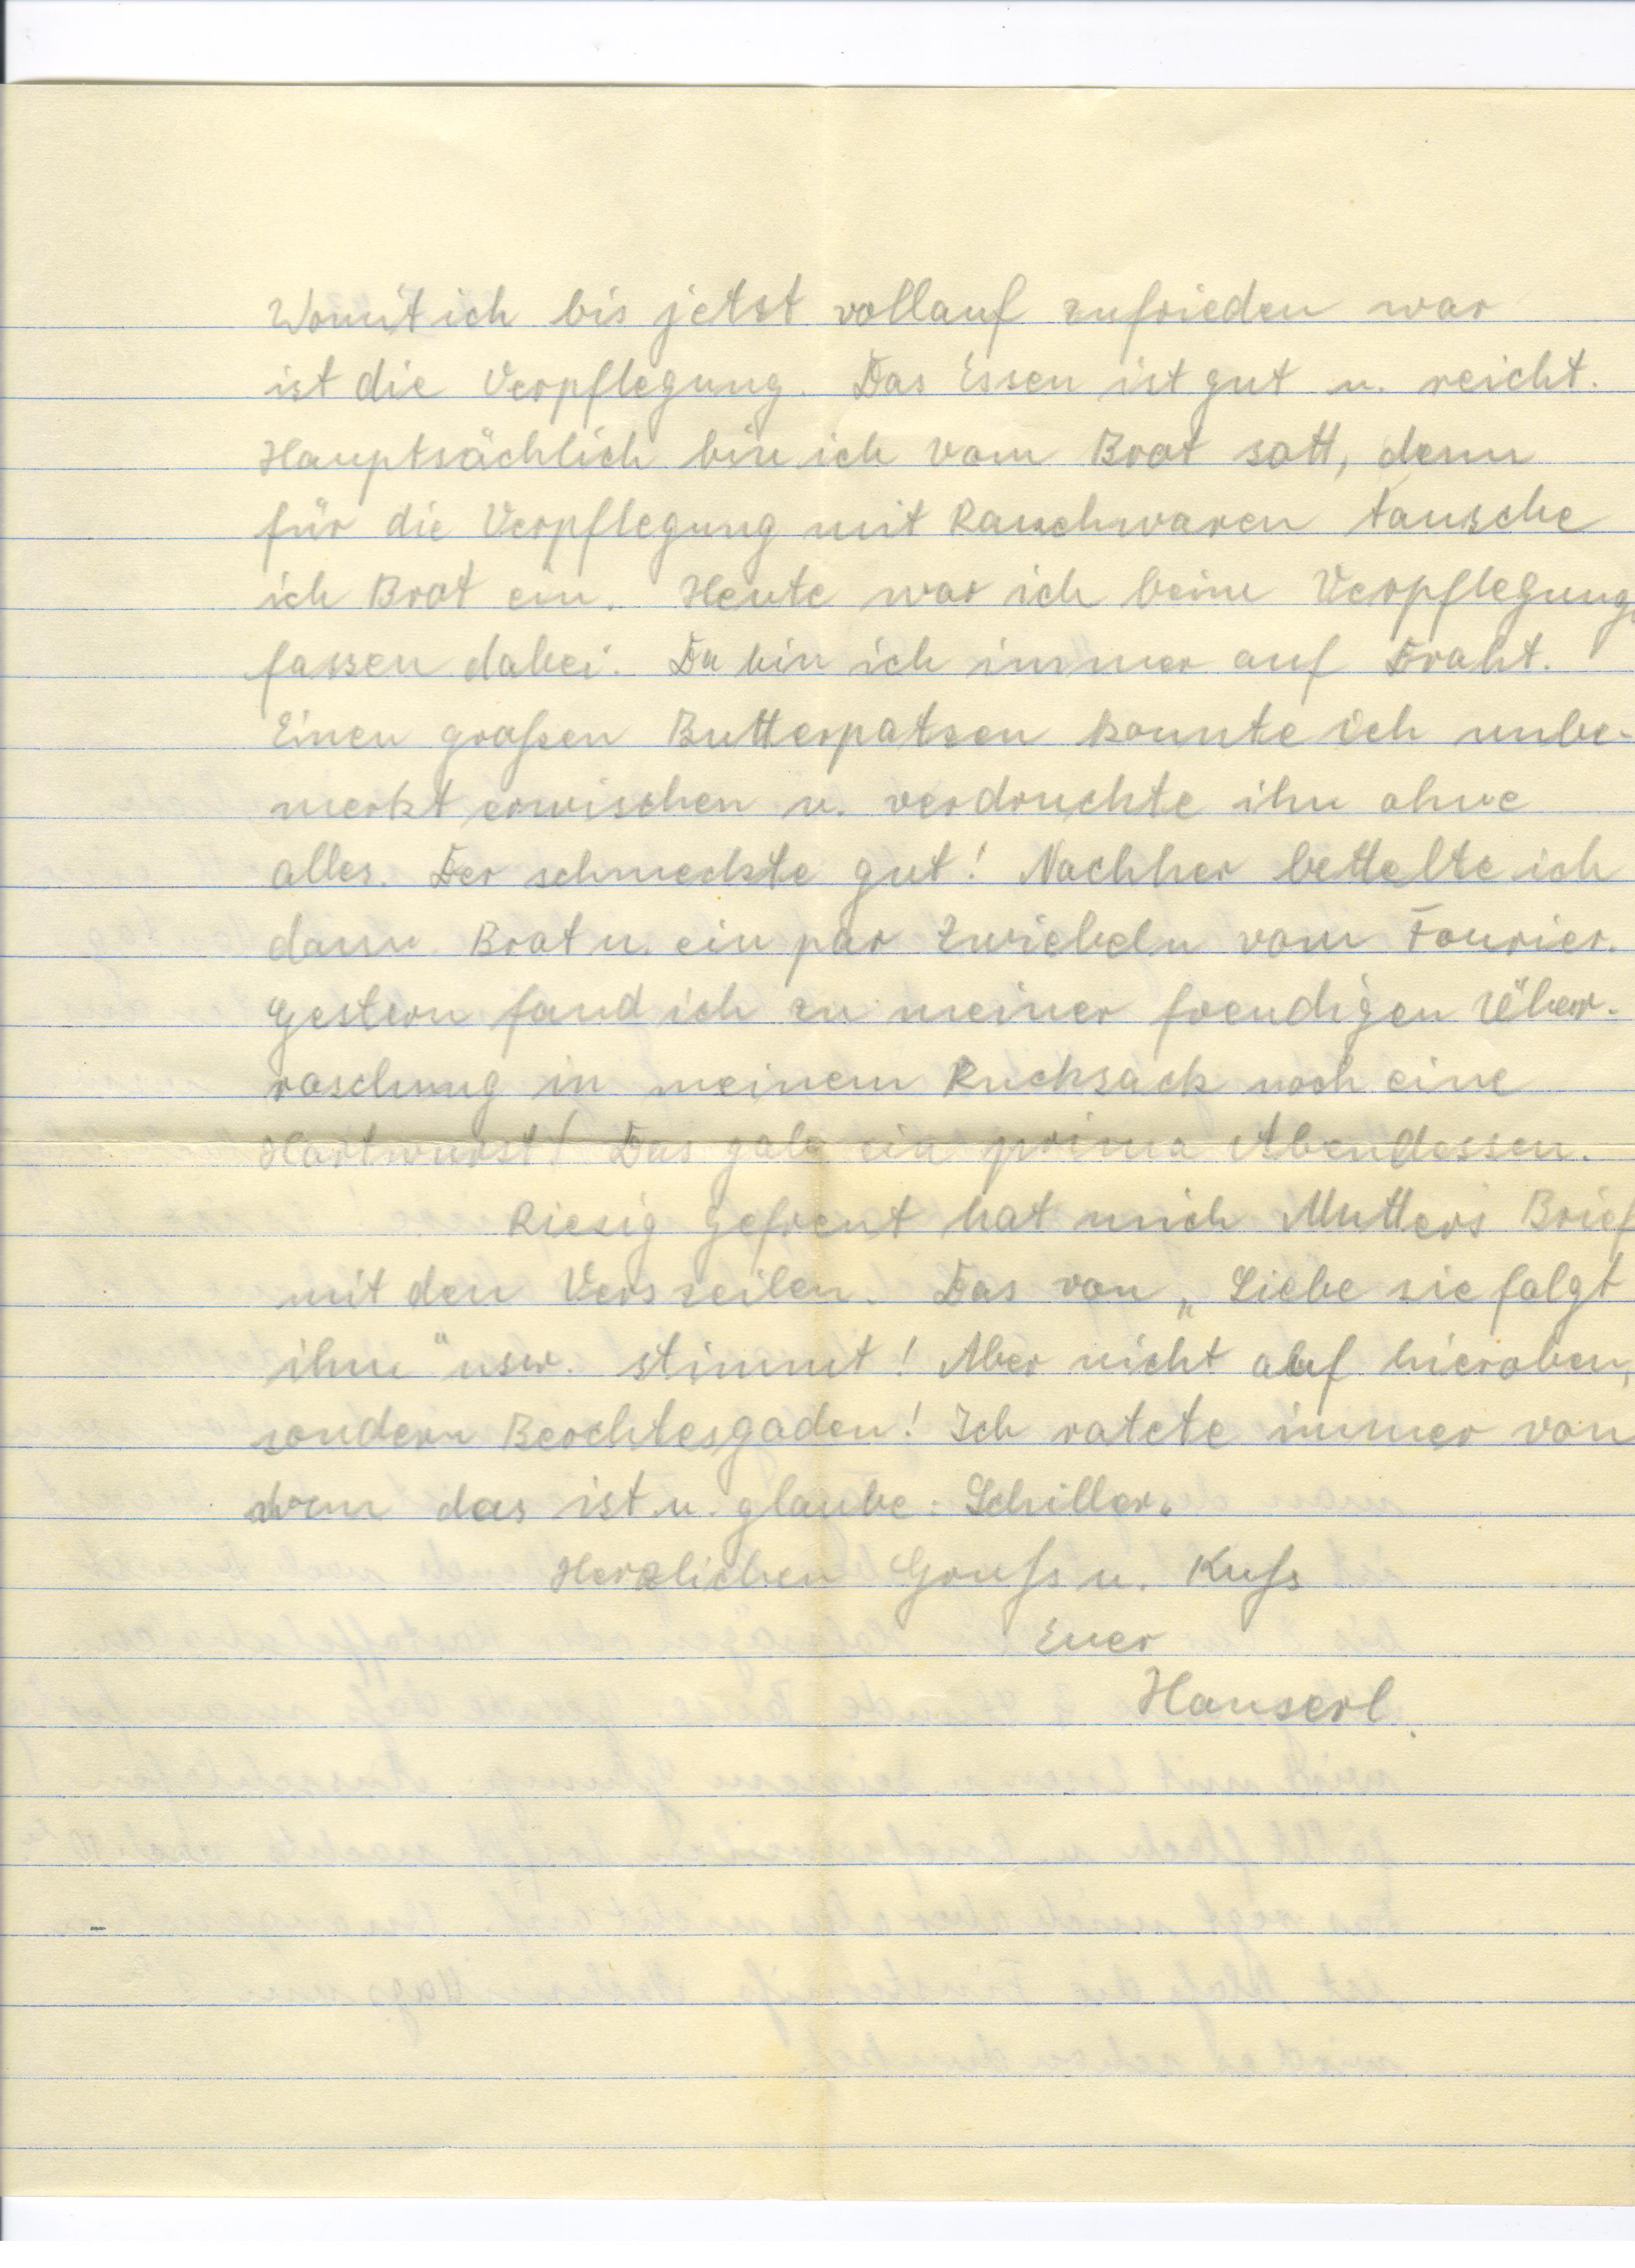 Womit ich bis jetzt vollauf zufrieden war
ist die Verpflegung. Das Essen ist gut u. reicht.
Hauptsächlich bin ich vom Brot satt, denn
für die Verpflegung mit Rauchwaren tausche
ich Brot ein. Heute war ich beim Verpflegung
fassen dabei. Da bin ich immer auf Draht.
Einen großen Butterpatzen konnte ich unbe-
merkt erwischen u. verdruckte ihn ohne
alles. Der schmeckte gut! Nachher bettelte ich
dann Brot u. ein par Zwiebeln vom Fourier.
Gestern fand ich zu meiner freudigen Über-
raschung in meinem Rucksack noch eine
Hartwurst! Das gab ein prima Abendessen.
Riesig gefreut hat mich Mutters Brief
mit den Verszeilen. Das von „Liebe sie folgt
ihm" usw. stimmt! Aber nicht auf hieroben,
sondern Berchtesgaden! Ich ratete immer von
wem das ist u. glaube: Schiller.
Herzlichen Gruß u. Kuß
Euer
Hanserl.